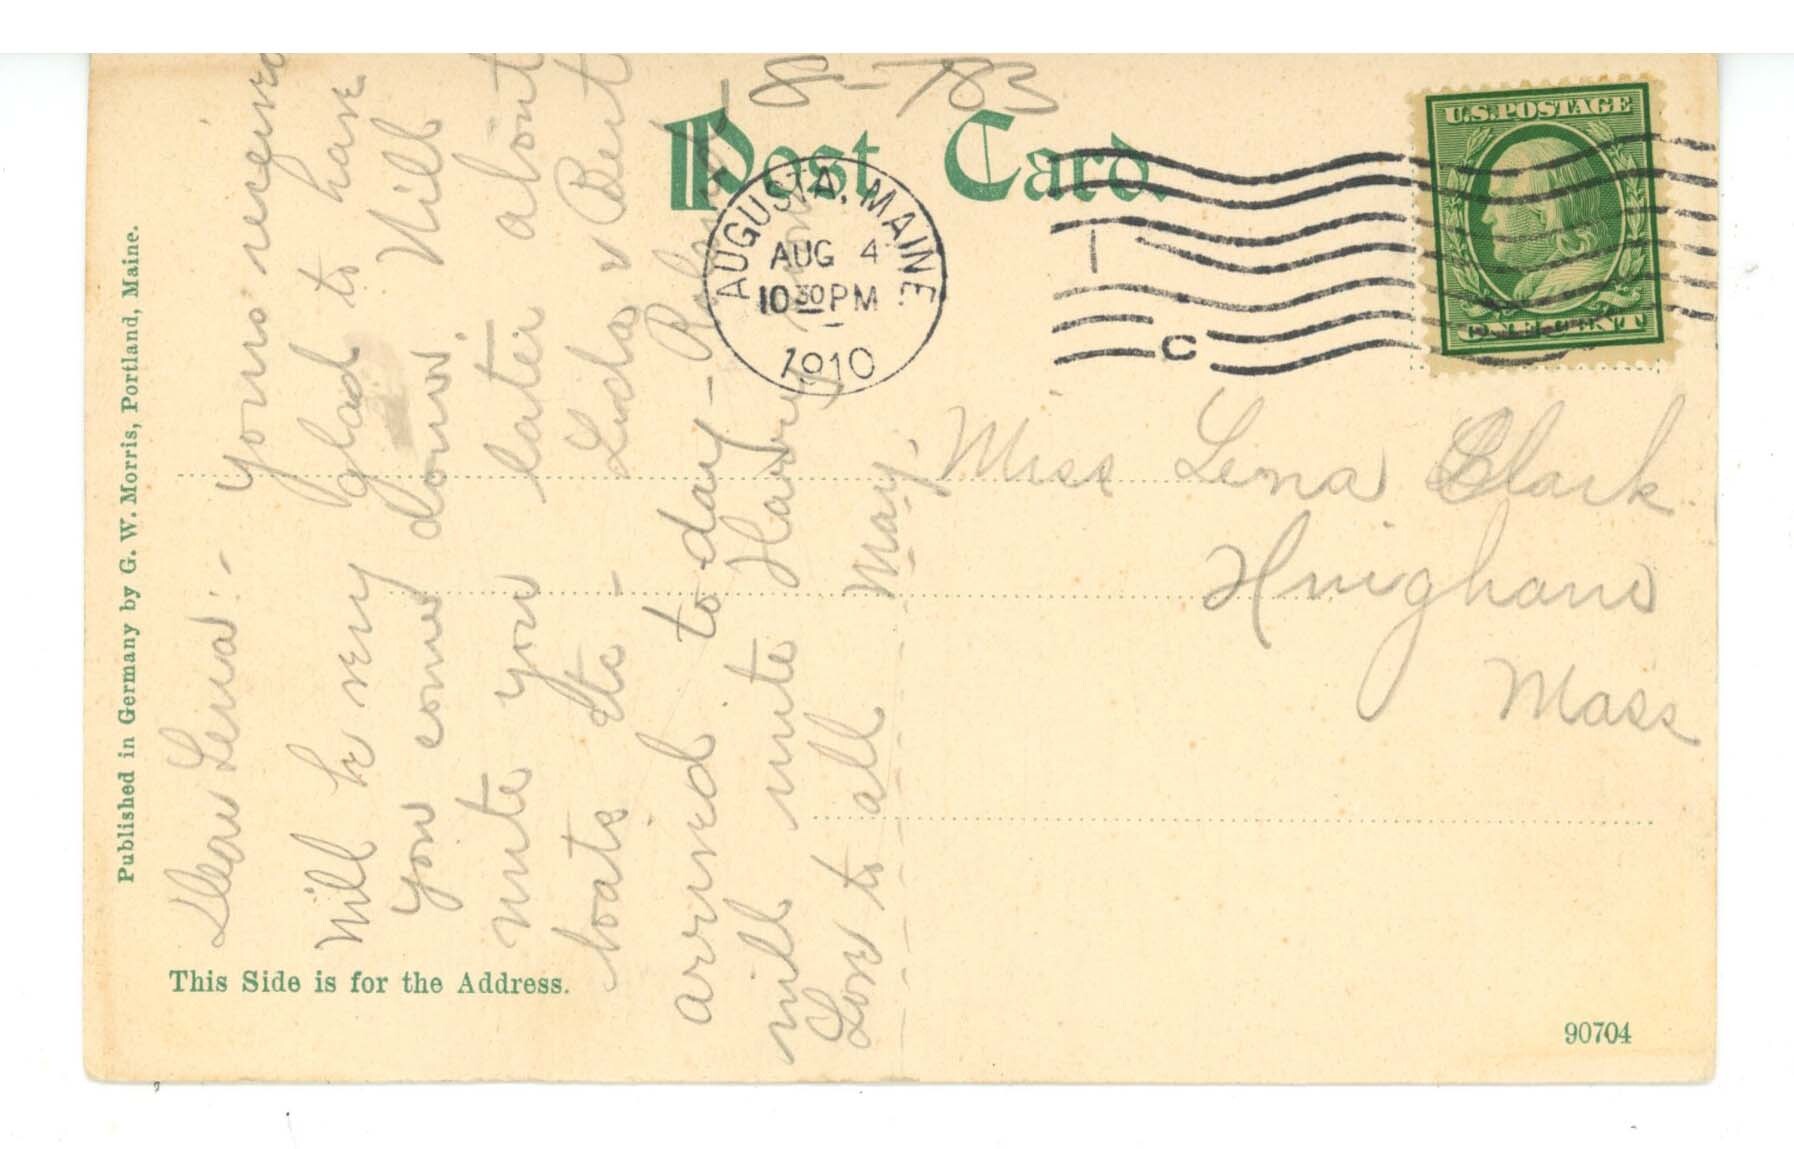 8-783
Post Card.
AUGUSTA, MAINE
AUG 4
10 30 PM
1910
C
U.S. POSTAGE
Published in Germany by G. W. Morris, Portland, Maine.
Dear Lena:- Yours received
Will be very glad to have
you come down. Will
write you later about
boats etc - Lida & Bert
arrived to-day -
will write Harry
Love to all May.
Miss Lena Clark
Hingham
Mass
This Side is for the Address.
90704